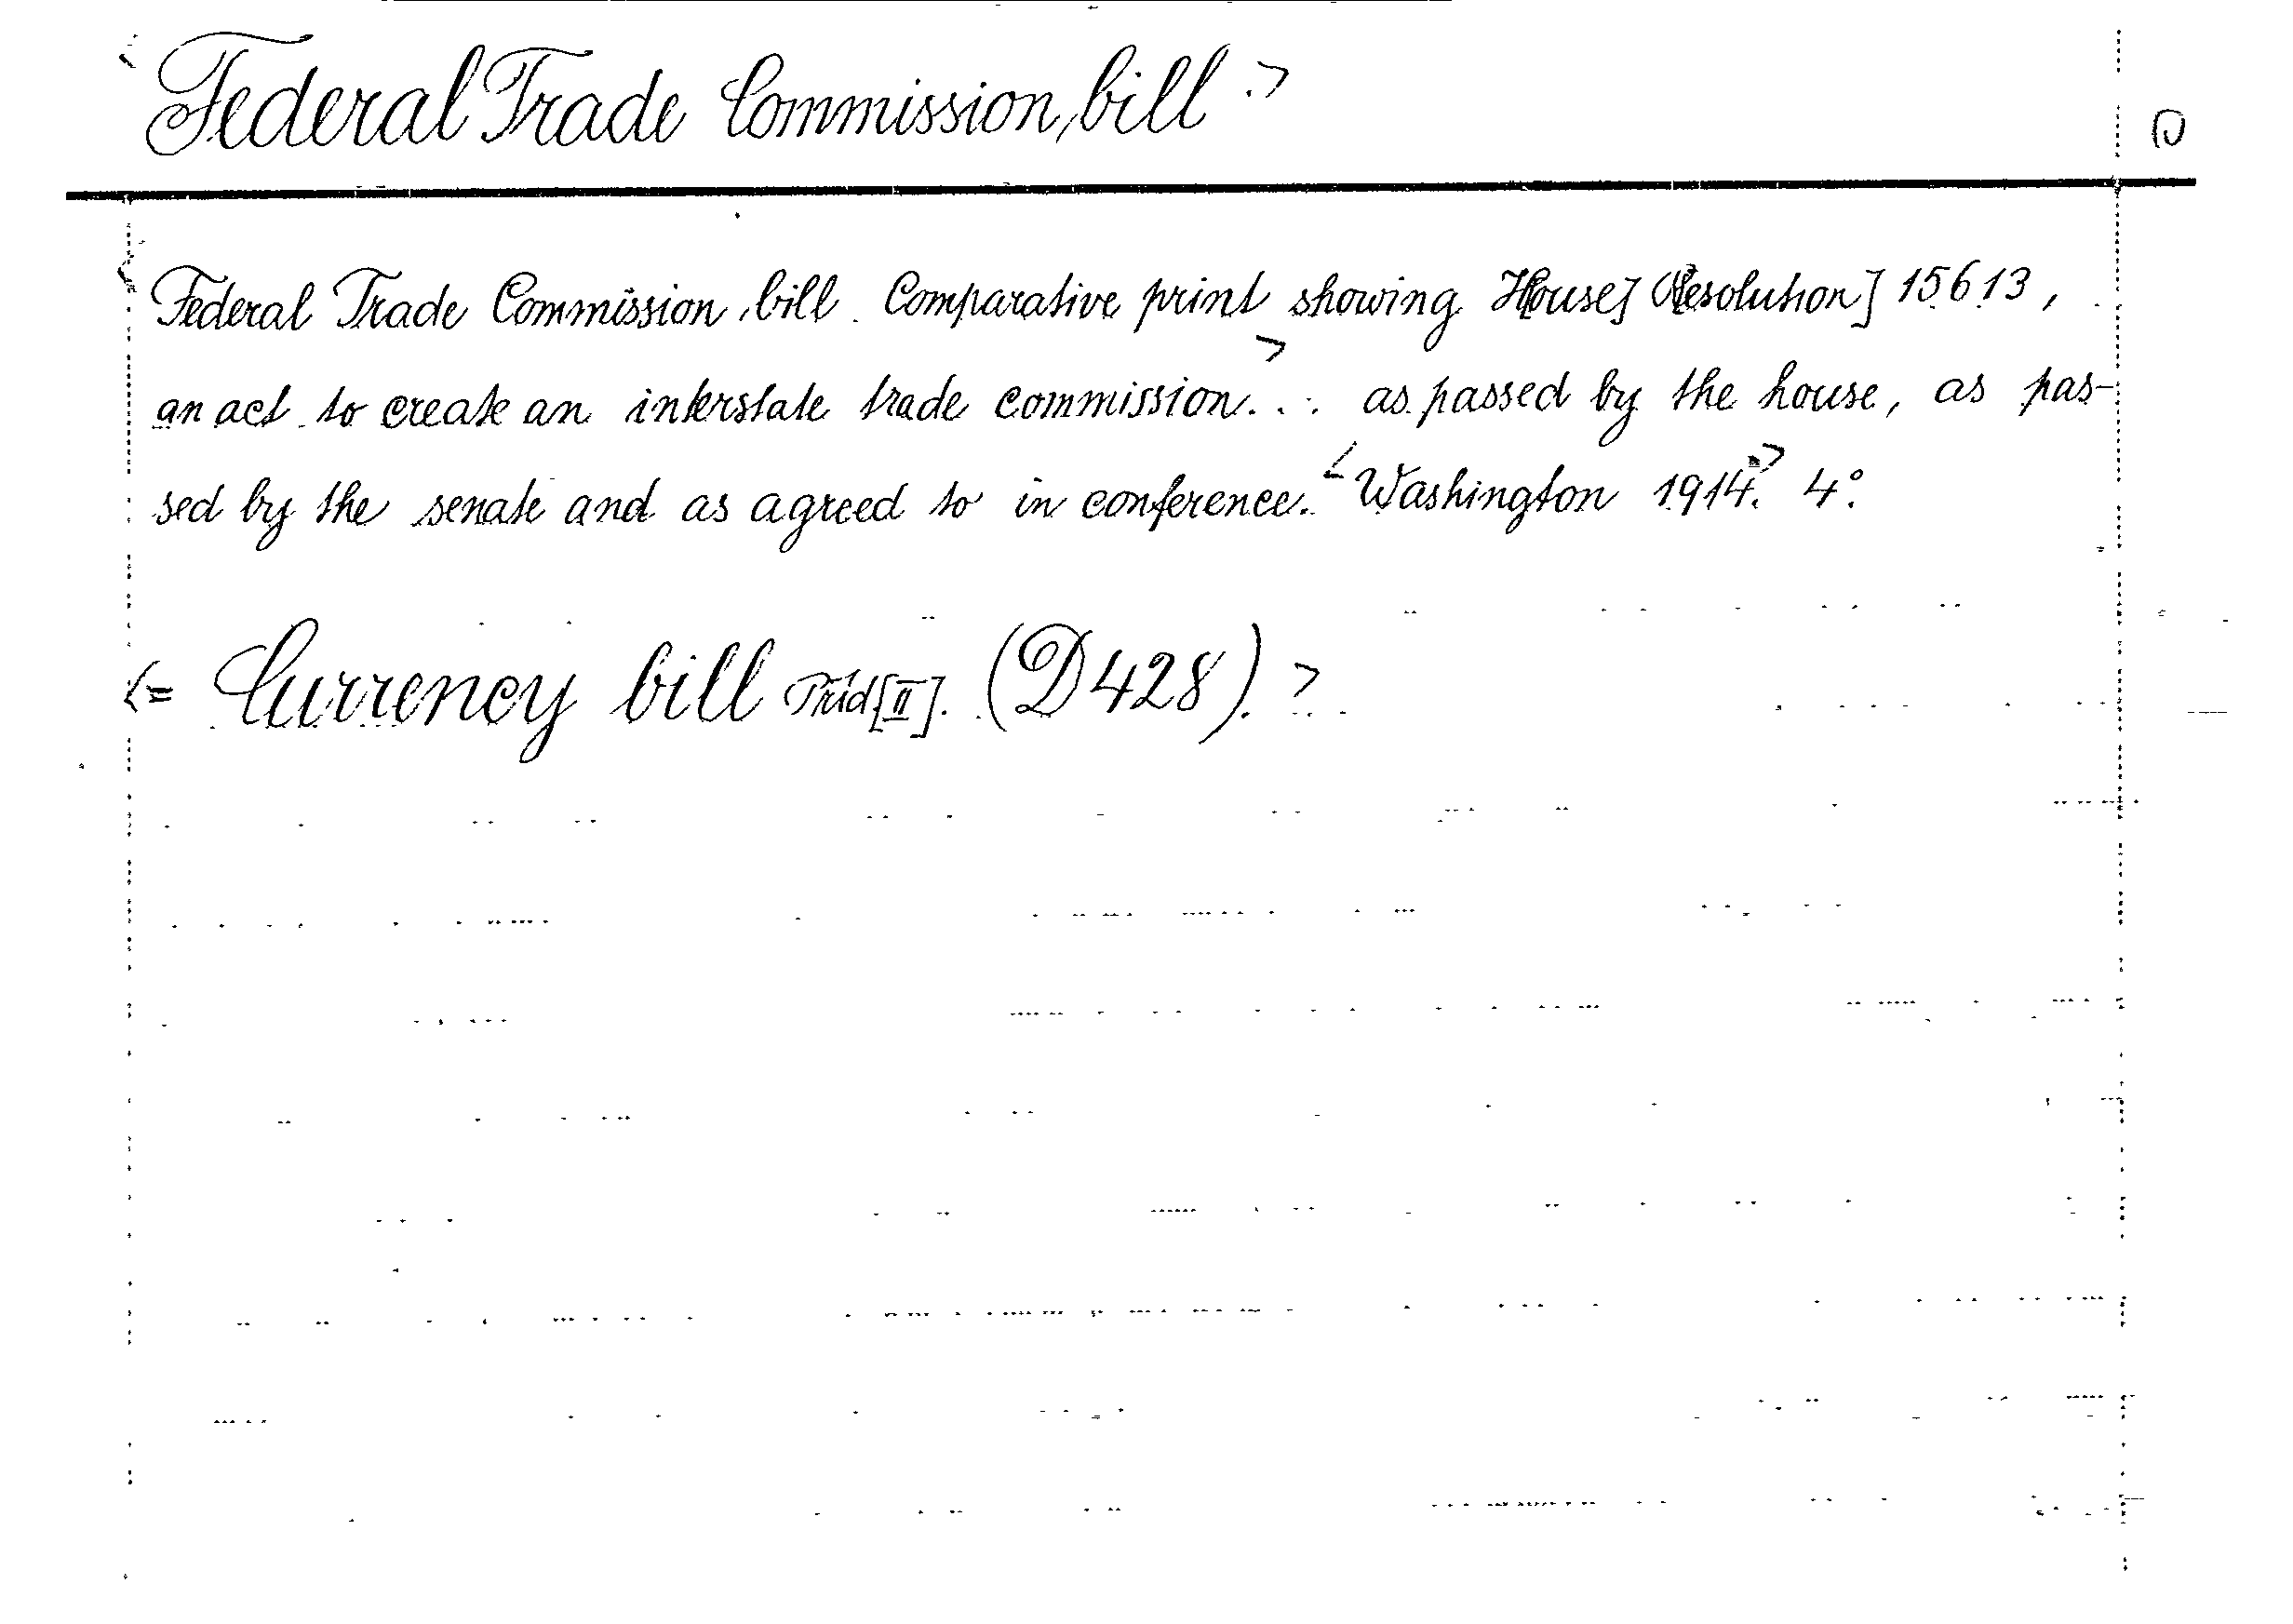 <Federal Trade Commission, bill.>
<Federal Trade Commission, bill. Comparative print showing H[ouse] R[esolution] 15613,
an act to create an interstate trade commission.> .. as passed by the house, as pas-
sed by the senate and as agreed to in conference. <Washington 1914.> 4°.
<= Currency bill [II]. (D428).>